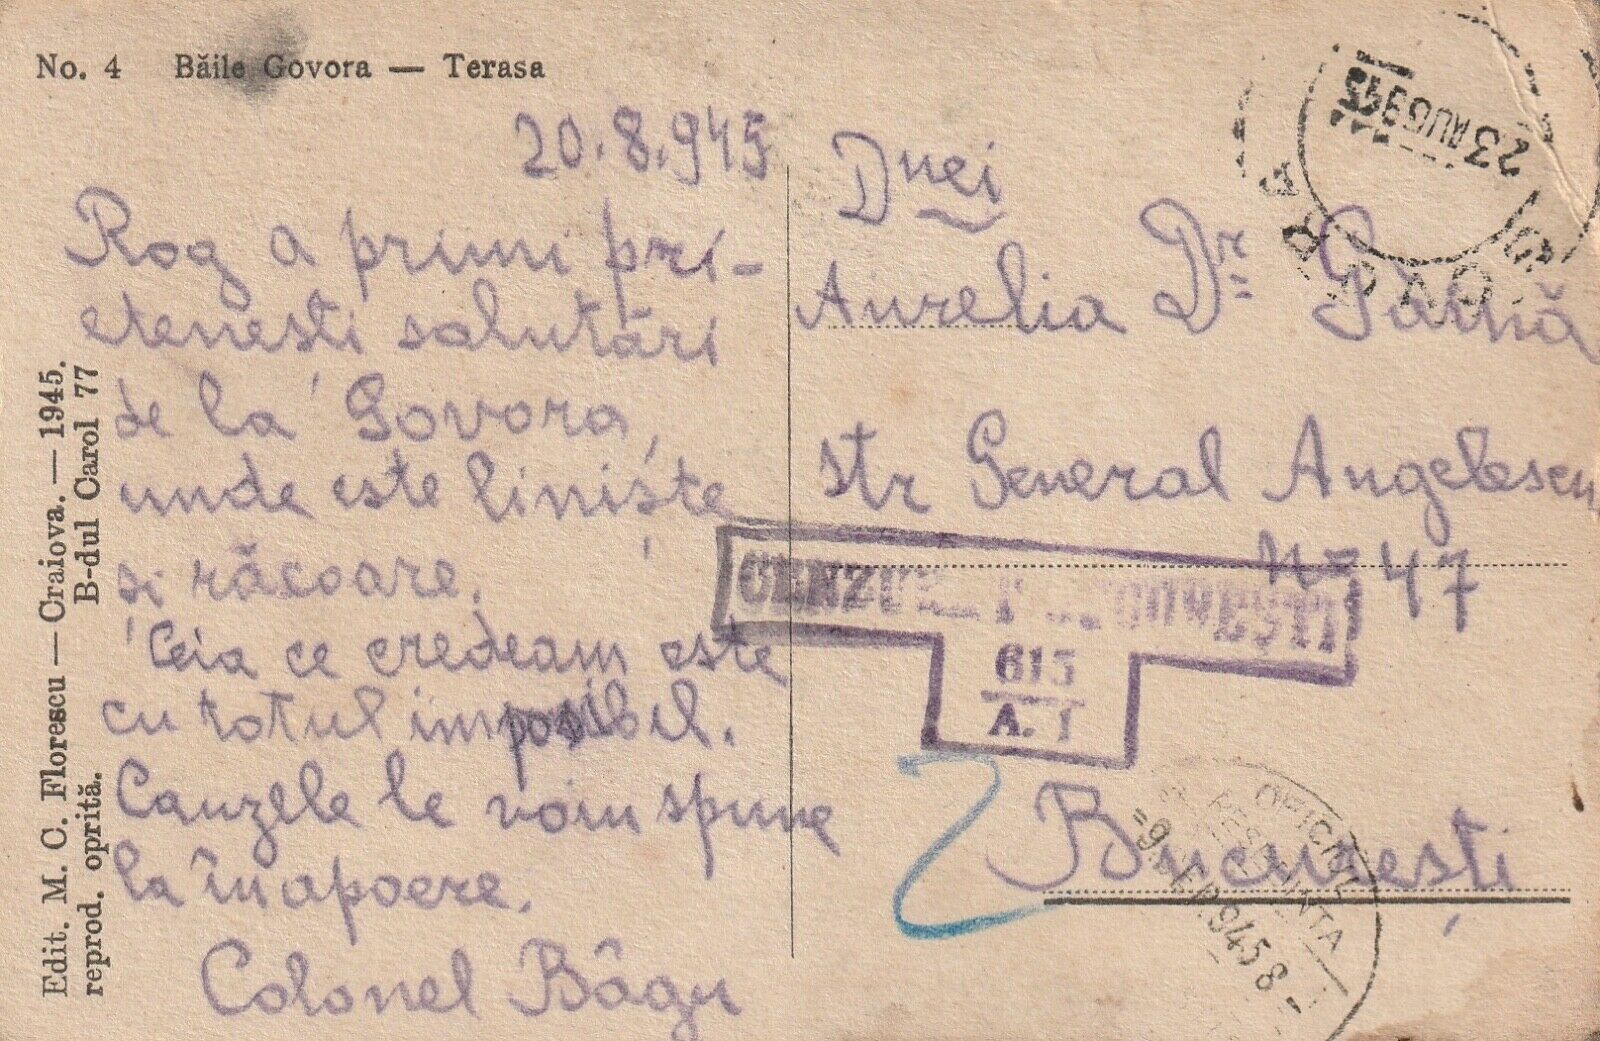 No. 4 Băile Govora — Terasa
20.8.945
Rog a primi pri-
etenesti salutări
de la Govora,
unde este liniște
și răcoare.
Ceia ce credeam este
cu totul imposibil.
Cauzele le voiu spune
la înapoere.
Colonel Bâgu
Edit. M. C. Florescu — Craiova. — 1945.
B-dul Carol 77
reprod. oprită.
23 AUG 945
GOVORA
Dnei
Aurelia Dr. Gană
str General Angelescu
No 47
București
615
A. I
2
OFICIUL
RESEDINTA
9 SEP. 945 8